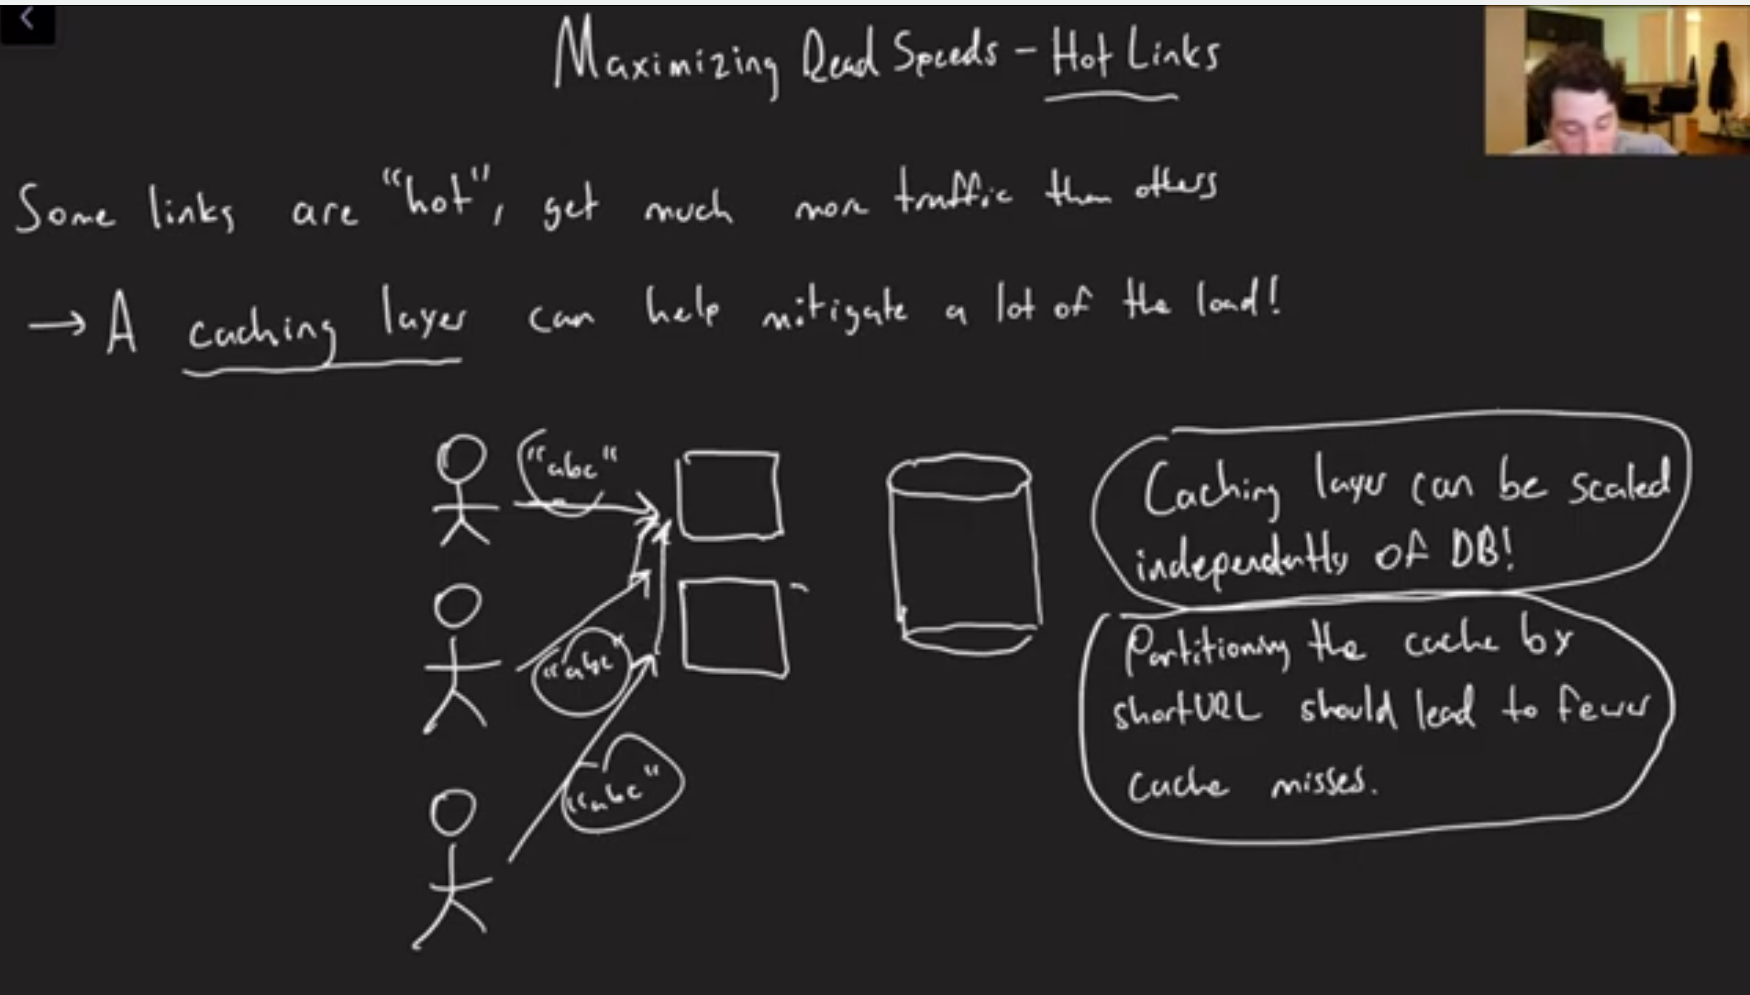 Maximizing Read Speeds - Hot Links
Some links are "hot", get much more traffic than others
→ A caching layer can help mitigate a lot of the load!
"abc"
"abc"
"abc"
Caching layer can be scaled
independently of DB!
Partitioning the cache by
shortURL should lead to fewer
cache misses.